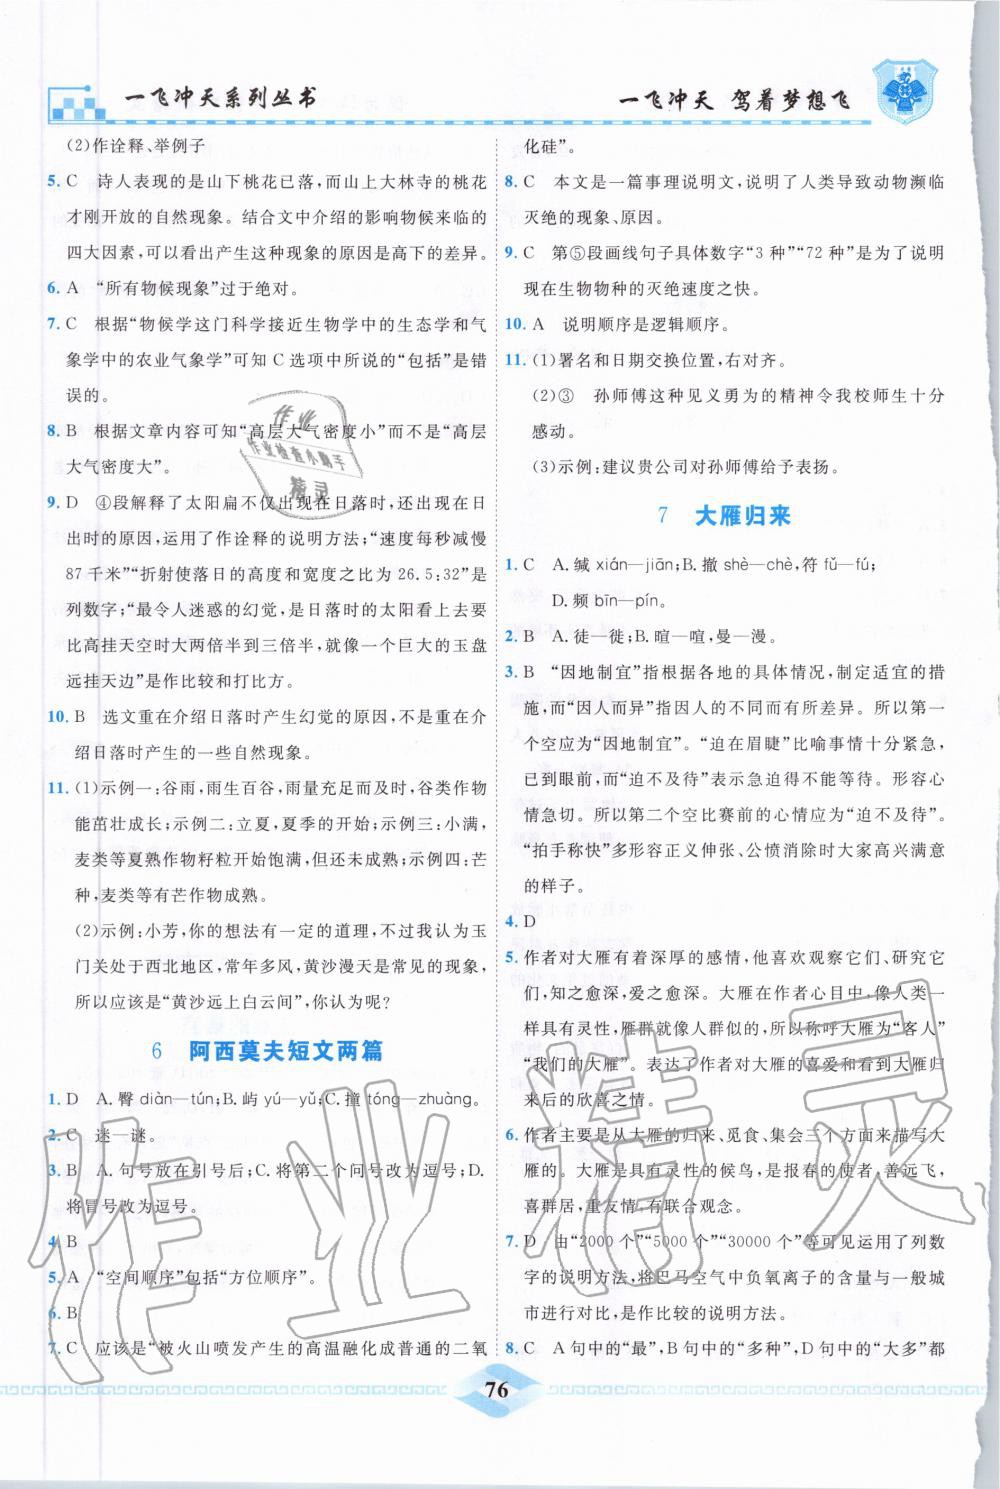 一飞冲天系列丛书
一飞冲天 驾着梦想飞
(2)作诠释、举例子
5. C 诗人表现的是山下桃花已落,而山上大林寺的桃花
才刚开放的自然现象。结合文中介绍的影响物候来临的
四大因素,可以看出产生这种现象的高下的差异。
6. A “所有物候现象”过于绝对。
7. C 根据“物候学这门科学接近生物学中的生态学和气
象学中的农业气象学”可知 C 选项中所说的“包括”是错
误的。
8. B 根据文章内容可知“高层大气密度小”而不是“高层
大气密度大”。
9. D ④段解释了太阳扁不仅出现在日落时,也出现在日
出时的原因,运用了作诠释的说明方法;“速度每秒减慢
87 千米”“折射使落日的高度和宽度之比为 26.5:32”是
列数字;“最令人迷惑的幻觉,是日落时的太阳看上去要
比高挂天空时大两倍半到三倍半,就像一个巨大的玉盘
远挂天边”是作比较和打比方。
10. B 选文重在介绍日落时产生幻觉的原因,不是重在介
绍日落时产生的一些自然现象。
11. (1)示例一:谷雨,雨生百谷,雨量充足而及时,谷类作物
能茁壮成长;示例二:立夏,夏季的开始;示例三:小满,
麦类等夏熟作物籽粒开始饱满,但还未成熟;示例四:芒
种,麦类等有芒作物成熟。
(2)示例:小芳,你的想法有一定的道理,不过我认为玉
门关处于西北地区,常年多风,黄沙漫天是常见的现象,
所以应该是“黄沙远上白云间”,你认为呢?
6 阿西莫夫短文两篇
1. D A. 臀 diàn—tún;B. 屿 yú—yǔ;C. 撞 tóng—zhuàng。
2. C 迷—谜。
3. B A. 句号放在引号后;C. 将第二个问号改为逗号;D.
将冒号改为逗号。
4. B
5. A “空间顺序”包括“方位顺序”。
6. B
7. C 应该是“被火山喷发产生的高温融化成普通的二氧
化硅”。
8. C 本文是一篇事理说明文,说明了人类导致动物濒临
灭绝的现象、原因。
9. C 第⑤段画线句子具体数字“3 种”“72 种”是为了说明
现在生物物种的灭绝速度之快。
10. A 说明顺序是逻辑顺序。
11. (1)署名和日期交换位置,右对齐。
(2)③ 孙师傅这种见义勇为的精神令我校师生十分
感动。
(3)示例:建议贵公司对孙师傅给予表扬。
7 大雁归来
1. C A. 缄 xián—jiān;B. 撤 shè—chè,符 fǔ—fú;
D. 频 bīn—pín。
2. B A. 徒—徙;B. 暄—喧,曼—漫。
3. B “因地制宜”指根据各地的具体情况,制定适宜的措
施,而“因人而异”指因人的不同而有所差异。所以第一
个空应为“因地制宜”。“迫在眉睫”比喻事情十分紧急,
已到眼前,而“迫不及待”表示急迫得不能等待。形容心
情急切。所以第二个空比赛前的心情应为“迫不及待”。
“拍手称快”多形容正义伸张、公愤消除时大家高兴满意
的样子。
4. D
5. 作者对大雁有着深厚的感情,他喜欢观察它们、研究它
们,知之愈深,爱之愈深。大雁在作者心目中,像人类一
样具有灵性,雁群就像人群似的,所以作者称其为“客人”
“我们的大雁”。表达了作者对大雁的喜爱和看到大雁归
来后的欣喜之情。
6. 作者主要是从大雁的归来、觅食、集会三个方面来描写大
雁的。大雁是具有灵性的候鸟,是报春的使者,善远飞,
喜群居,重友情,有联合观念。
7. D 由“2000 个”“5000 个”“30000 个”等可见运用了列数
字的说明方法,将巴马空气中负氧离子的含量与一般城
市进行对比,是作比较的说明方法。
8. C A 句中的“最”,B 句中的“多种”,D 句中的“大多”都
76
作业
作业检查小助手
精灵
作业精灵